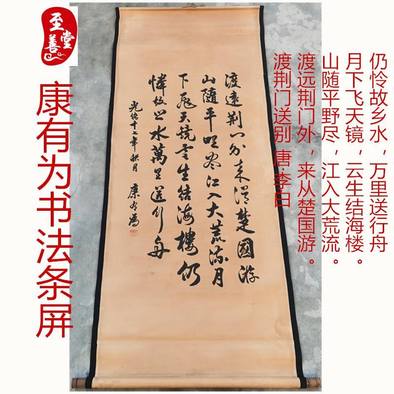 至善堂
康有为书法条屏
渡遠荆门外来從楚國游
山随平野尽江入大荒流月
下飛天镜雲生结海樓仍
憐故乡水萬里送行舟
光绪十二年秋月 康有為
渡荆门送别 唐·李白
渡远荆门外，来从楚国游。
山随平野尽，江入大荒流。
月下飞天镜，云生结海楼。
仍怜故乡水，万里送行舟